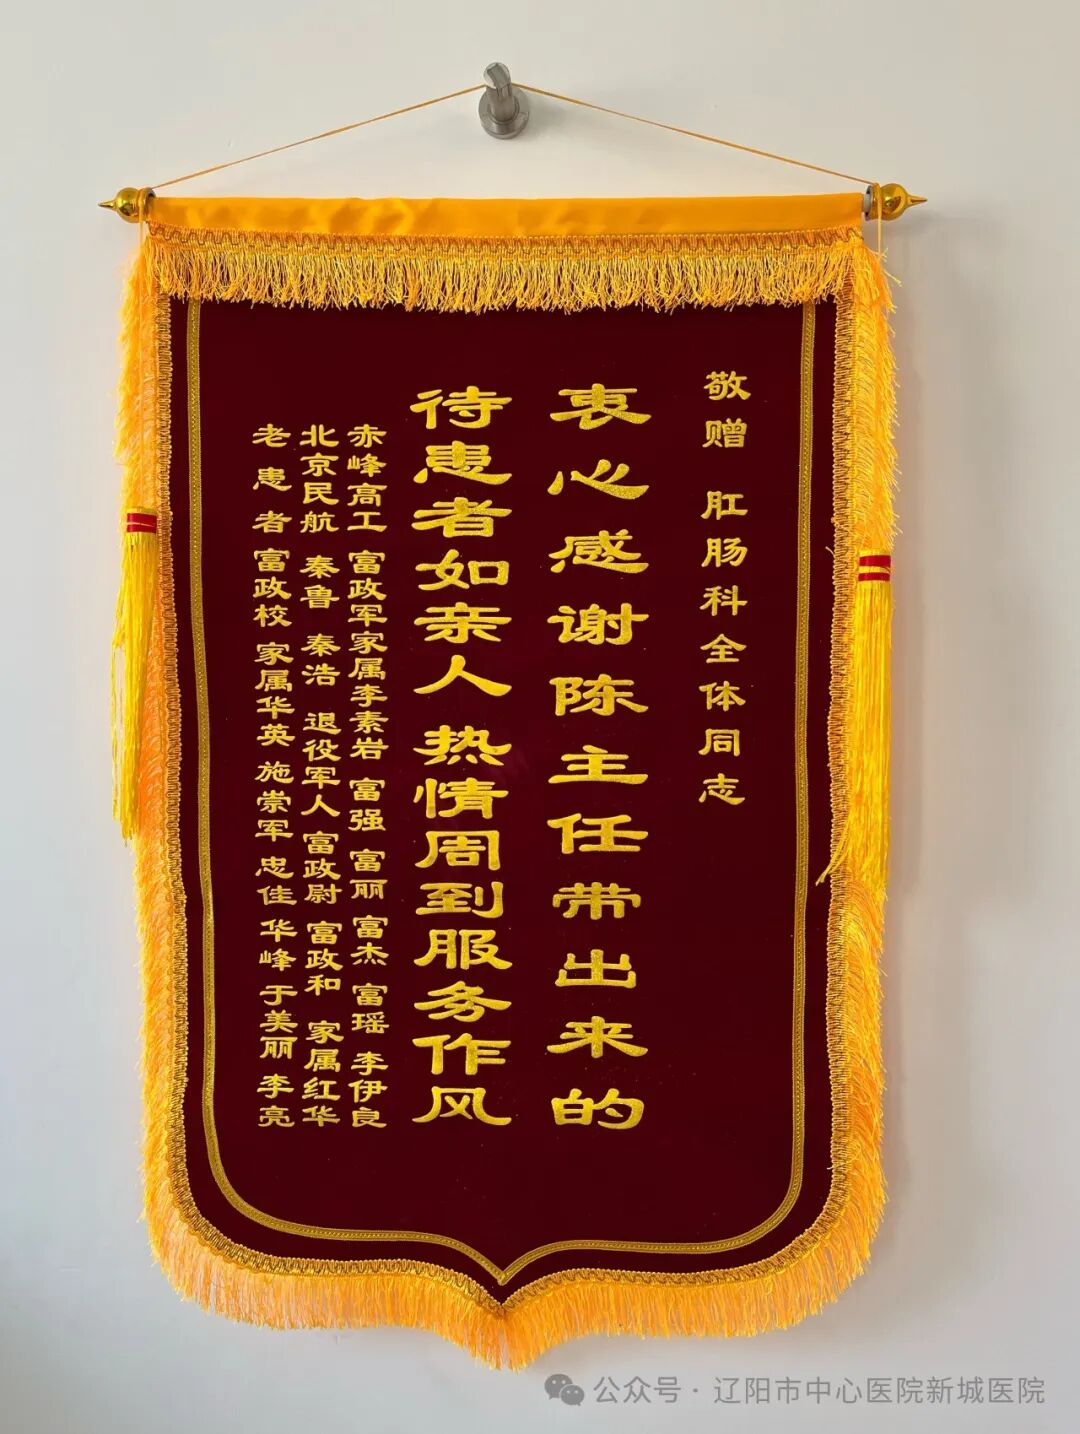 敬赠 肛肠科全体同志
衷心感谢陈主任带出来的
待患者如亲人 热情周到服务作风
赤峰高工 富政军家属李素岩 富强 富丽 富杰 富瑶 李伊良
北京民航 秦鲁 秦浩 退役军人 富政尉 富政和 家属红华
老患者 富政校 家属华英 施崇军 忠佳 华峰 于美丽 李亮
公众号·辽阳市中心医院新城医院